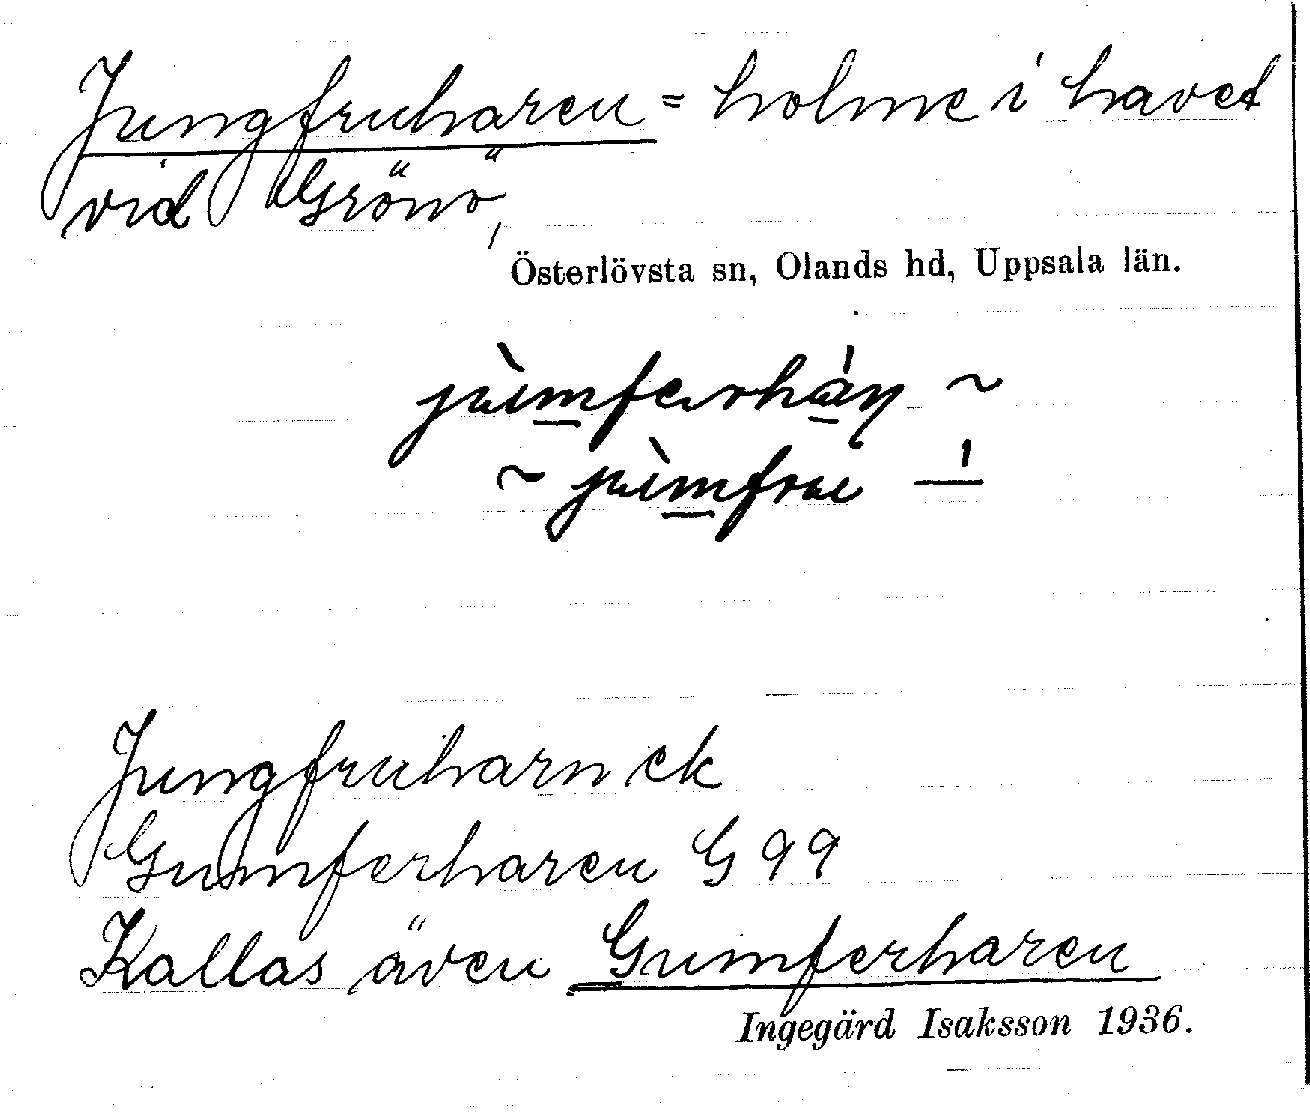 Jungfruharen = holme i havet
vid Grönö,
Österlövsta sn, Olands hd, Uppsala län.
~
~
Jungfruharn ek
Gumferharen G 99
Kallas även Gumferharen
Ingegärd Isaksson 1936.